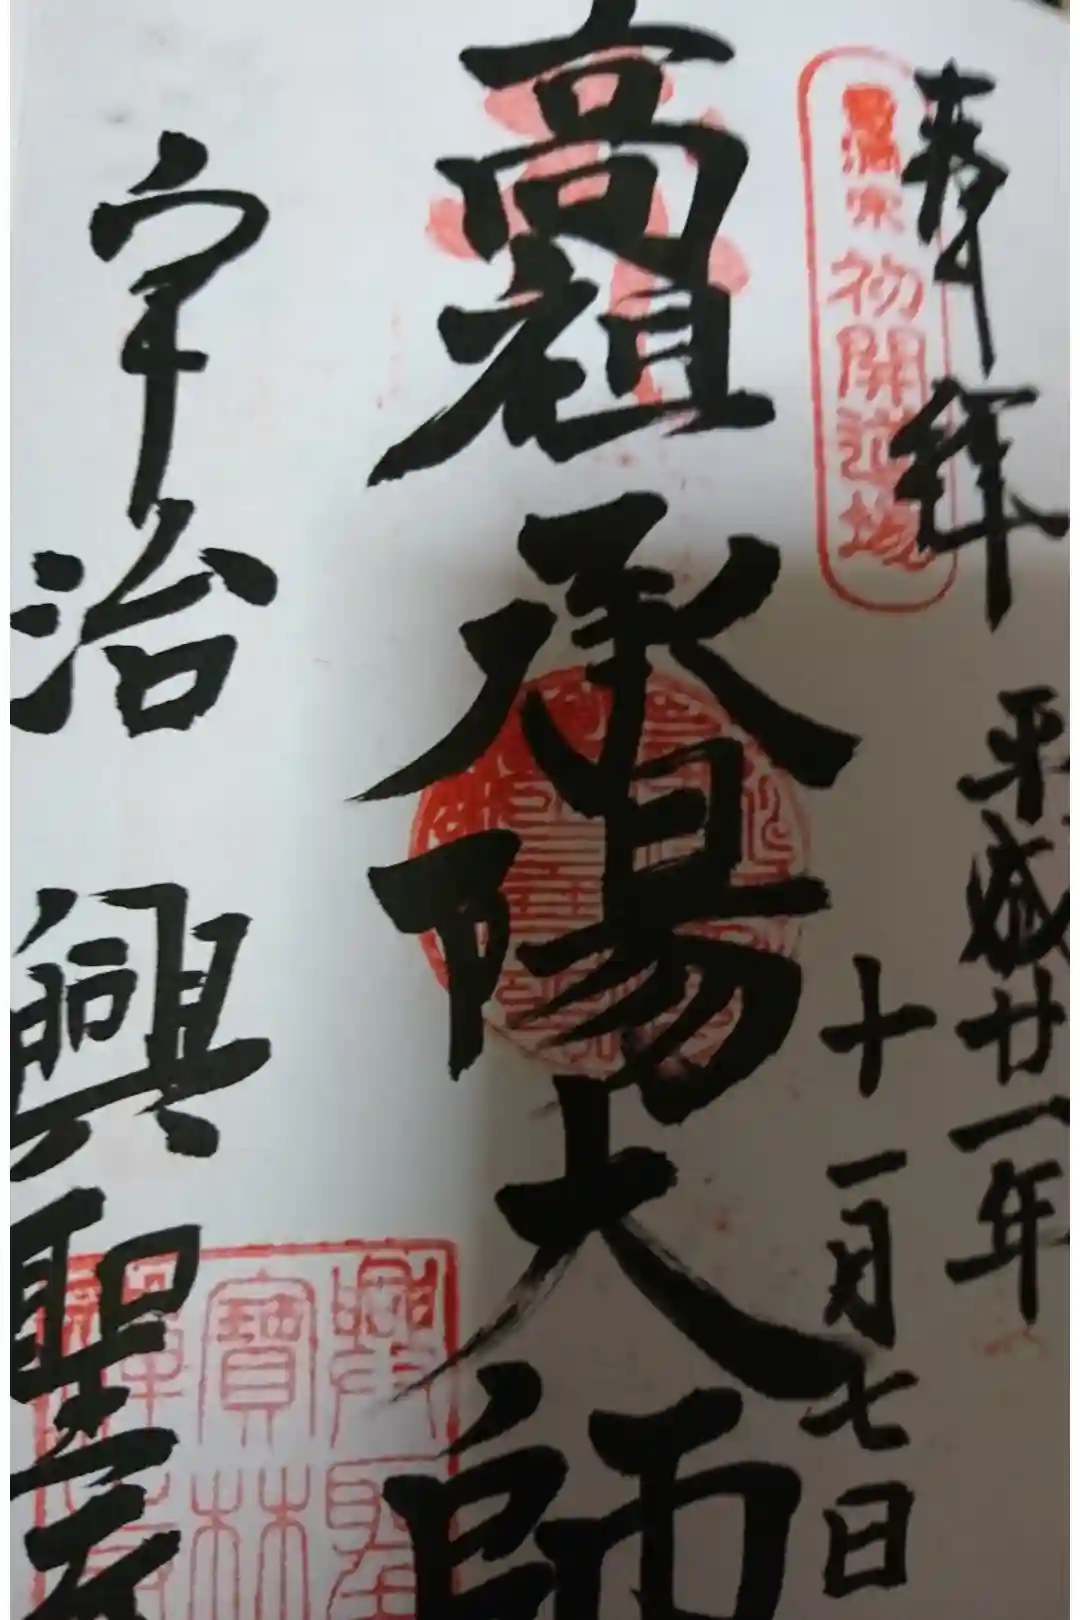 奉拝
平成廿一年
十一月七日
初開道場
高祖承陽大師
宇治 興聖寺
興聖
寶林
禅